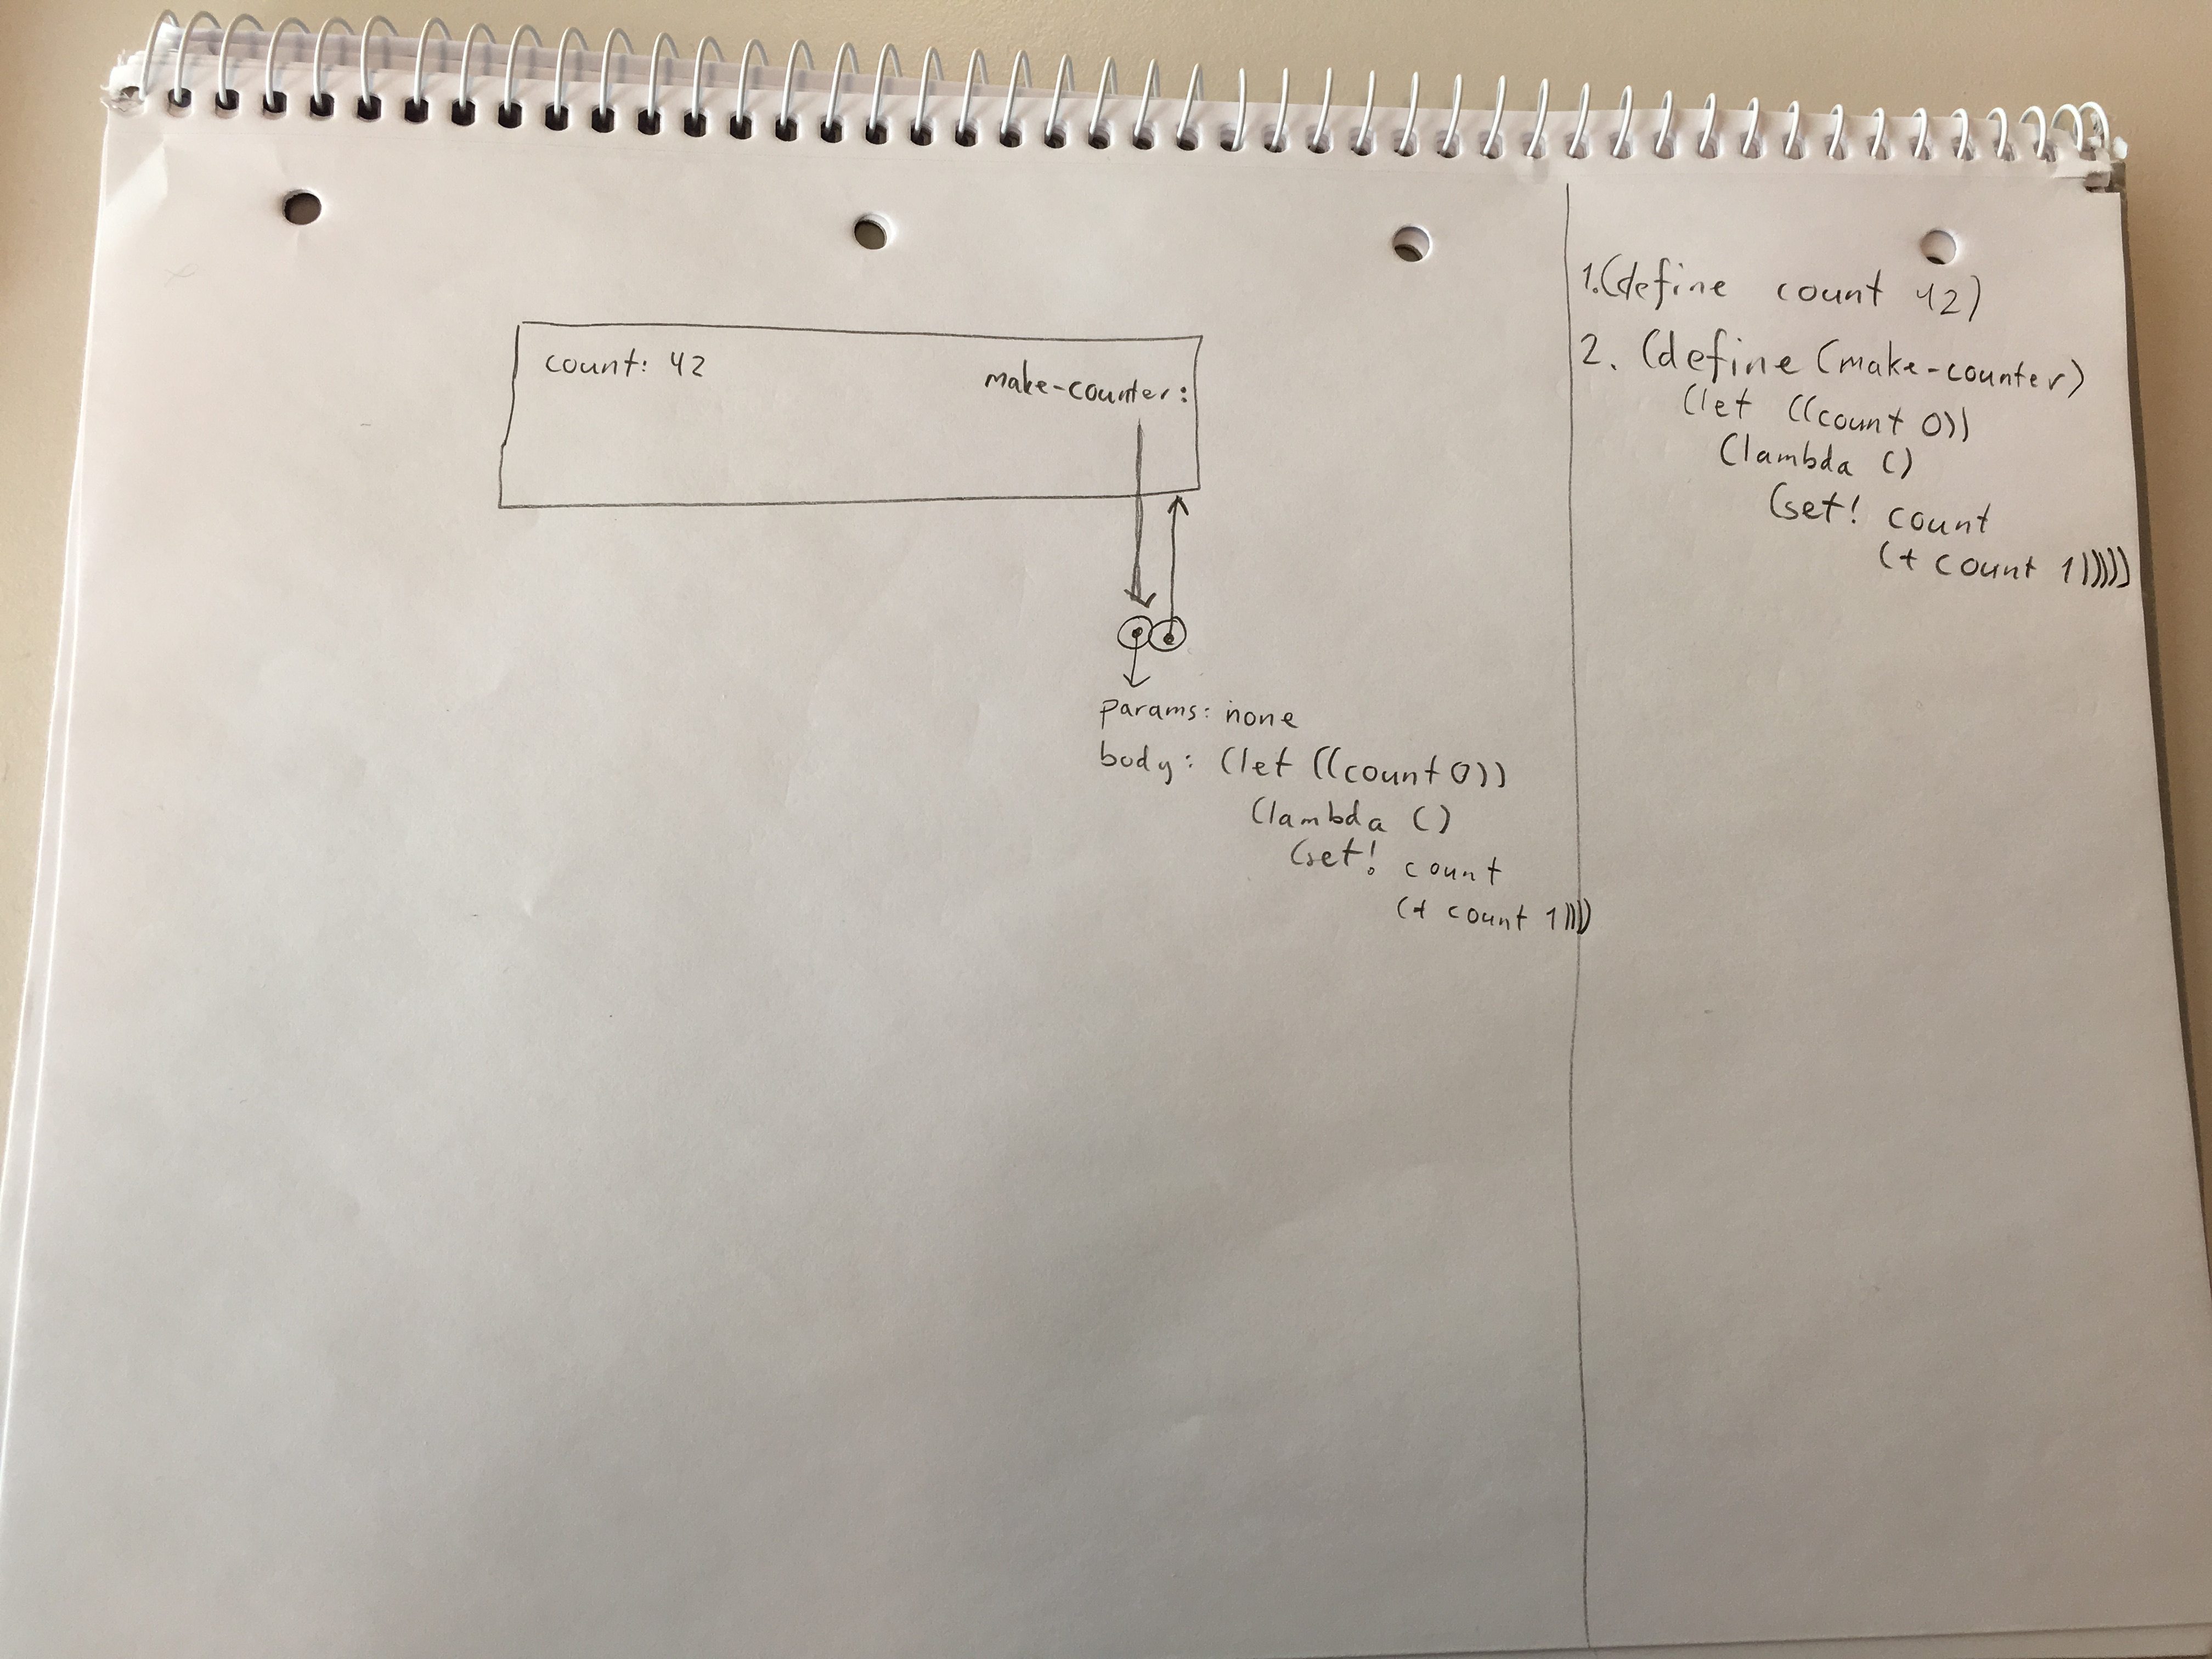 count: 42
make-counter:
params: none
body: (let ((count 0))
(lambda ()
(set! count
(+ count 1))))
1.(define count 42)
2. (define (make-counter)
(let ((count 0))
(lambda ()
(set! count
(+ count 1)))))